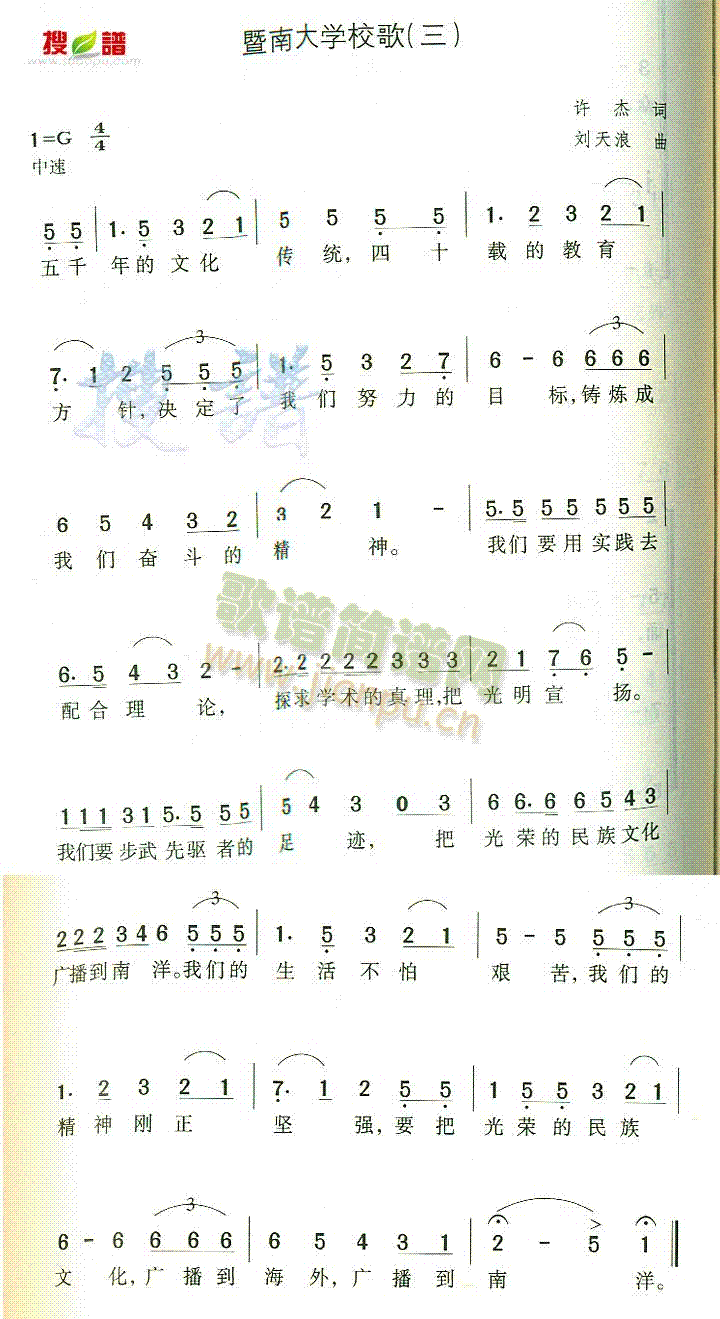 搜谱
www.sooopu.com
暨南大学校歌(三)
许杰 词
1=G 4/4
刘天浪 曲
中速
5 5 | 1· 5 3 2 1 | 5 5 5 5 | 1· 2 3 2 1 |
五千 年的文化 传统,四十 载的教育
3 3
7· 1 2 5 5 5 | 1· 5 3 2 7 | 6 - 6 6 6 6 |
方针,决定了 我们努力的 目标,铸炼成
搜谱
6 5 4 3 2 | 3 2 1 - | 5· 5 5 5 5 5 5 |
我们奋斗的 精神。 我们要用实践去
歌谱简谱网
www.jianpu.cn
6· 5 4 3 2 - | 2· 2 2 2 2 3 3 3 | 2 1 7 6 5 - |
配合理论, 探求学术的真理,把 光明宣扬。
1 1 1 3 1 5· 5 5 5 | 5 4 3 0 3 | 6 6· 6 6 5 4 3
我们要步武先驱者的 足迹, 把 光荣的民族文化
3 3
2 2 2 3 4 6 5 5 5 | 1· 5 3 2 1 | 5 - 5 5 5 5 |
广播到南洋。我们的 生活不怕 艰苦,我们的
1· 2 3 2 1 | 7· 1 2 5 5 | 1 5 5 3 2 1 |
精神刚正 坚强,要把 光荣的民族
3
6 - 6 6 6 6 | 6 5 4 3 1 | 2 - 5 1 ‖
文化,广播到 海外,广播到 南洋。